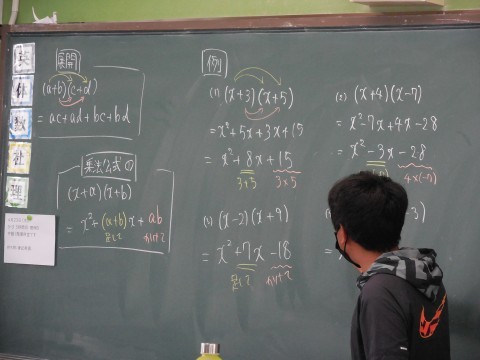 展開
(a+b)(c+d)
= ac+ad+bc+bd
乗法公式①
(x+a)(x+b)
= x²+(a+b)x+ab
足して かけて
例
(1) (x+3)(x+5)
= x²+5x+3x+15
= x²+8x+15
3+5 3×5
(2) (x+4)(x-7)
= x²-7x+4x-28
= x²-3x-28
4×(-7)
(x-2)(x+9)
= x²+7x-18
足して かけて
-3)
体
数
社
理